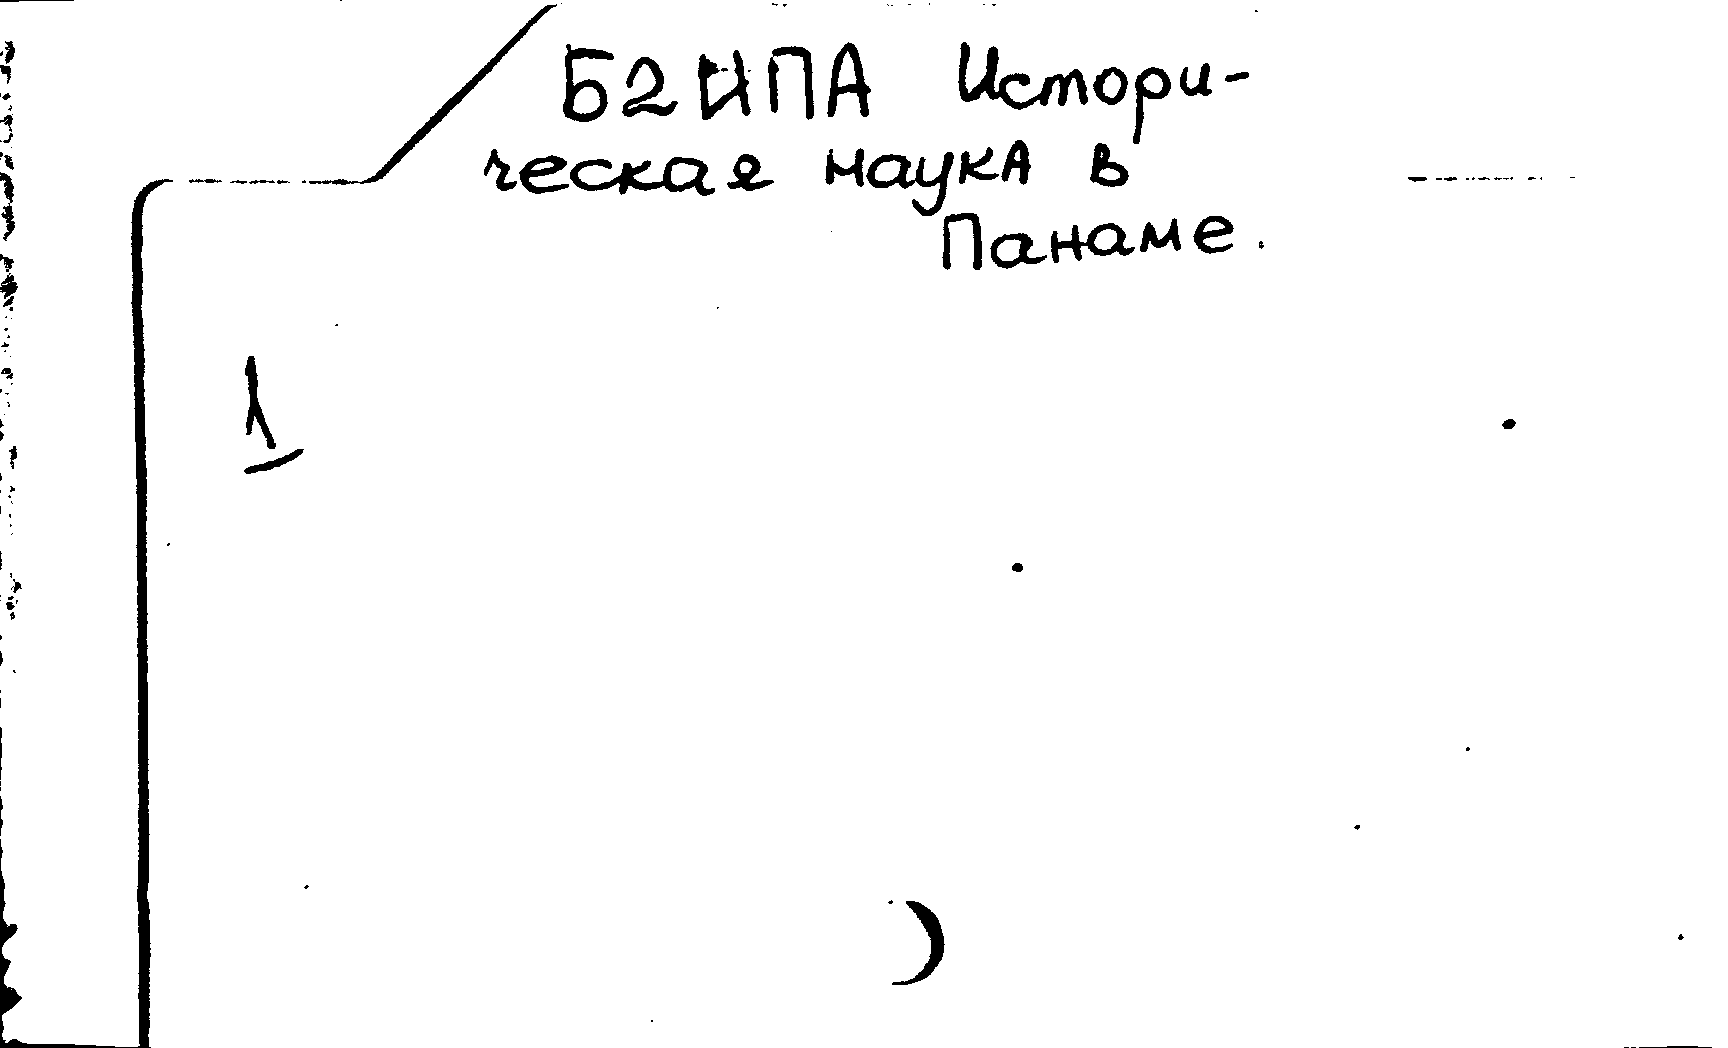 Б2ИПА Истори-
ческая наука в
Панаме.
1